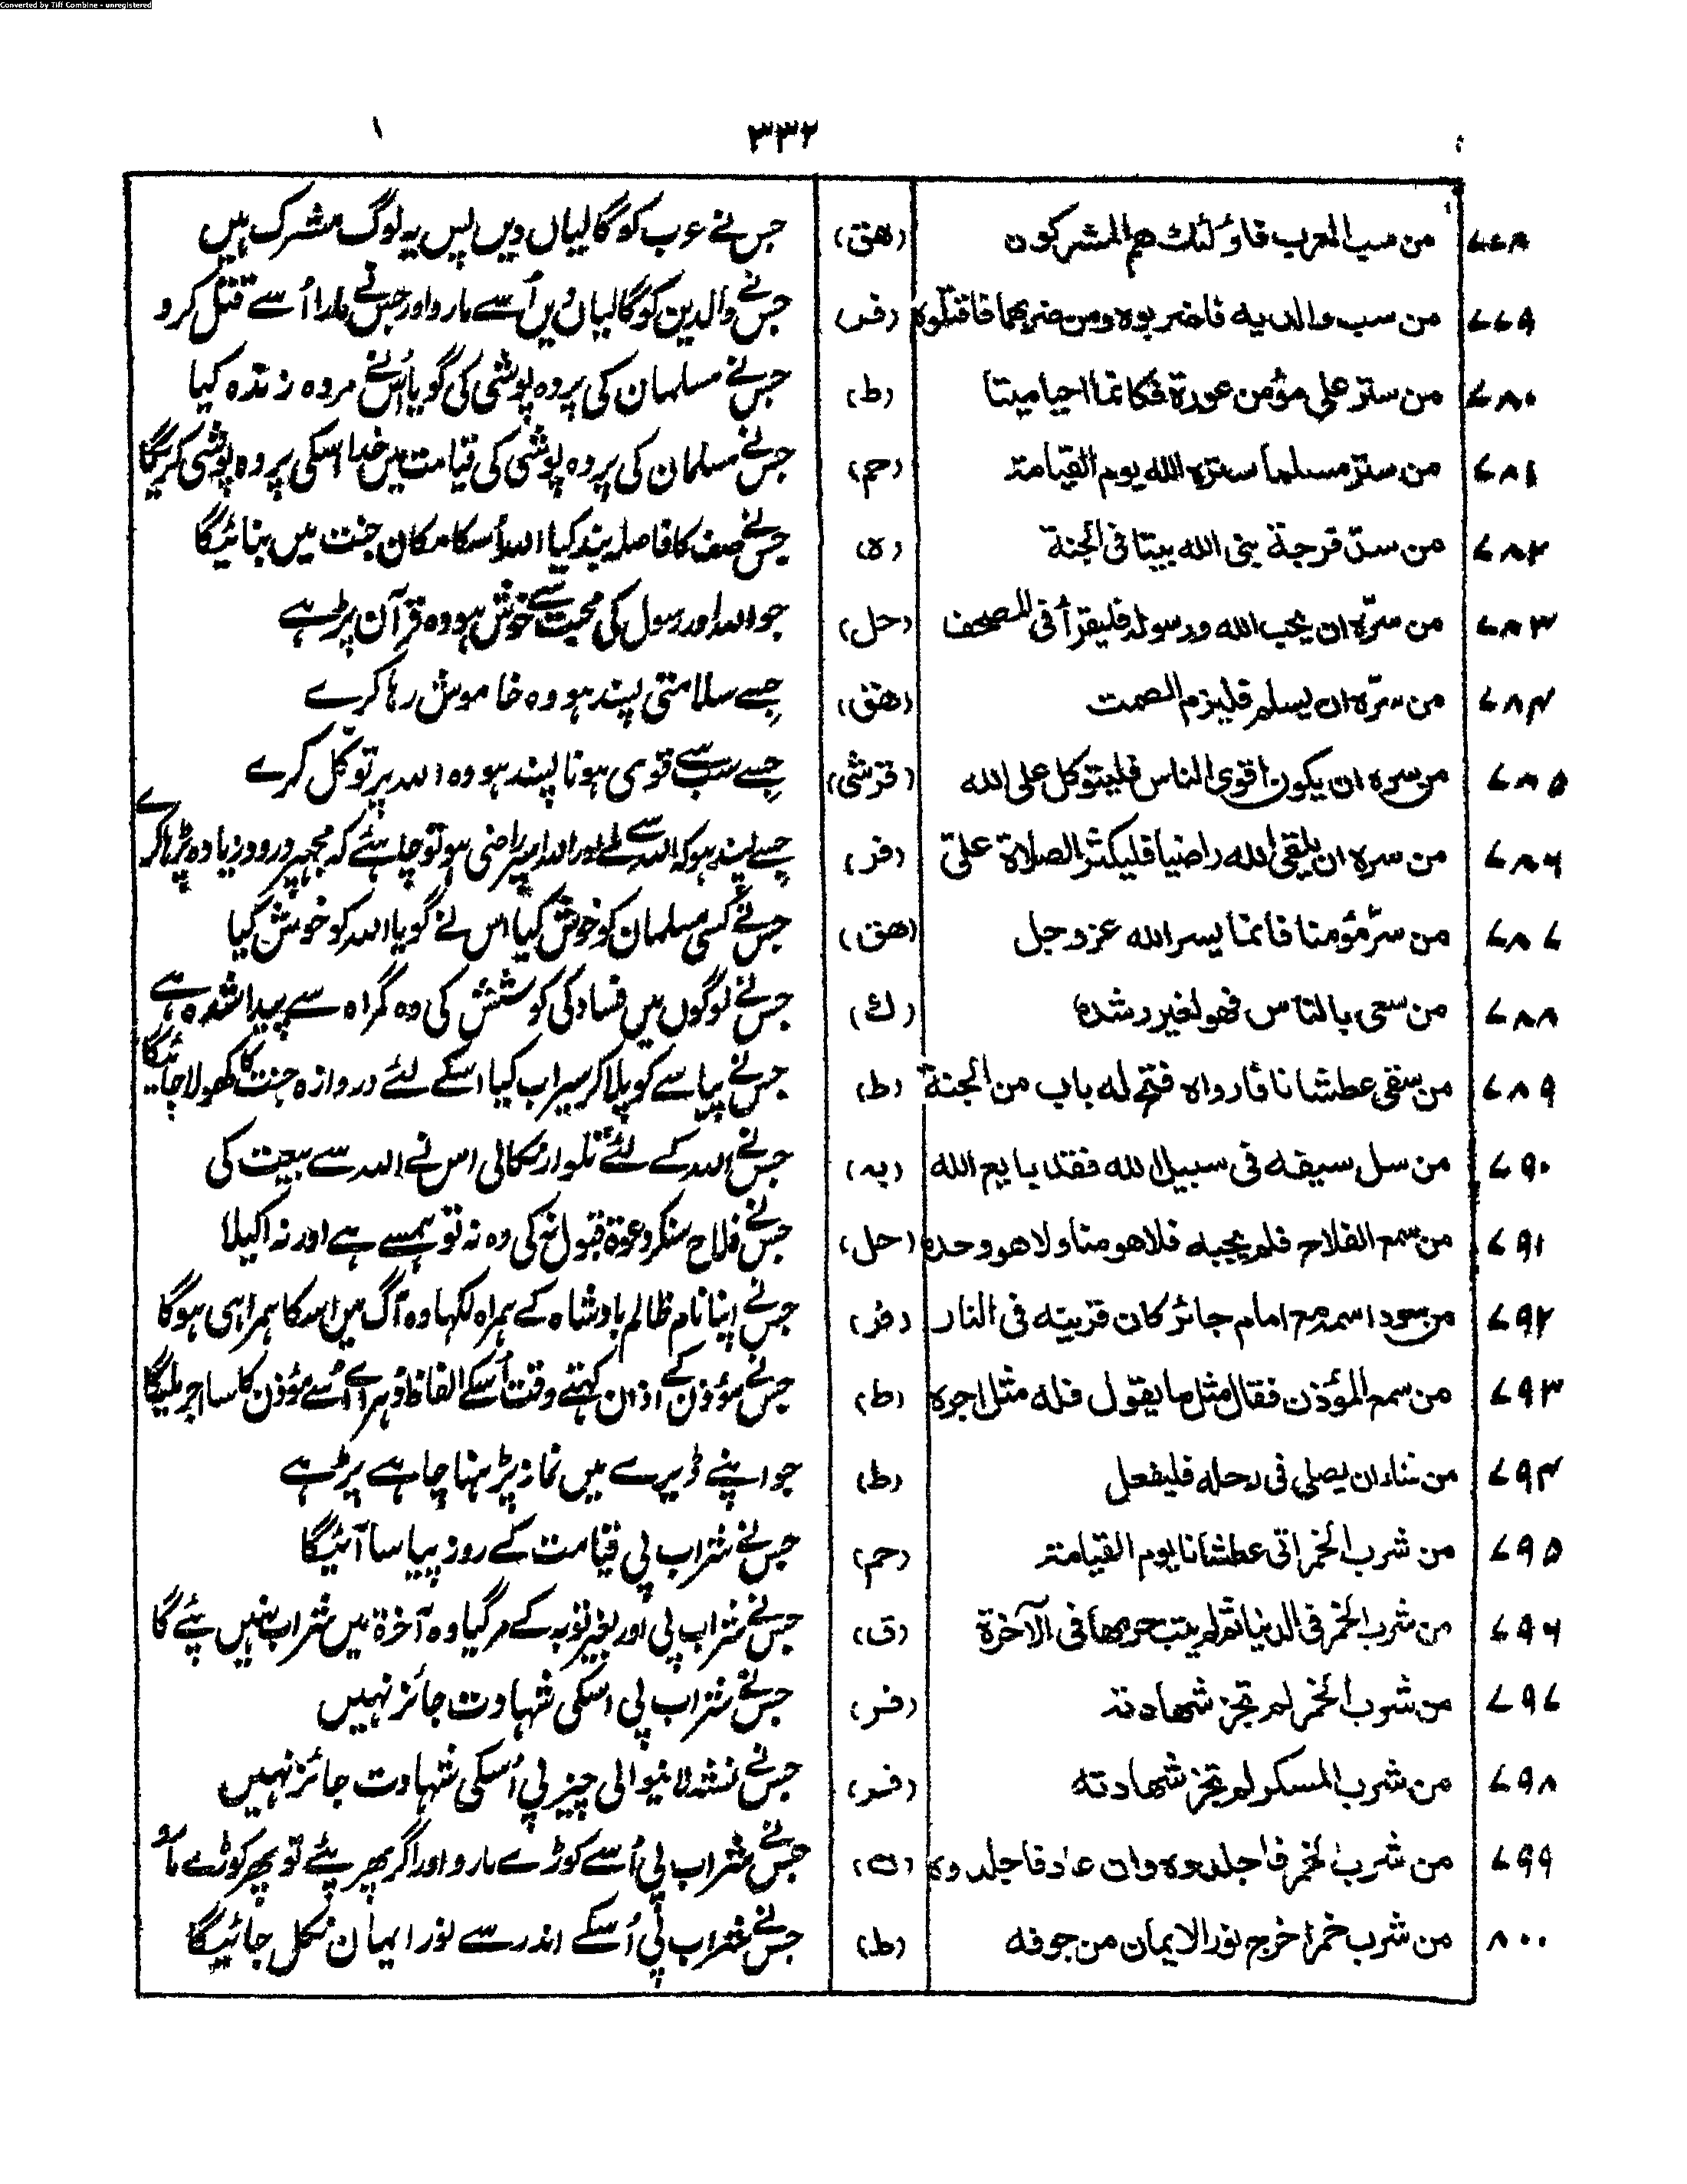 Converted by Tiff Combine - unregistered
۳۳۲
۷۷۸ من سب العرب فاوٓلئك هم المشركون (هق) جس نے عرب کو گالیاں دیں پس یہ لوگ مشرک ہیں
۷۷۹ من سب والديه فاضربوه ومن ضربهما فاقتلوه (فر) جس نے والدین کو گالیاں دیں اُسے مارو اور جس نے مارا اُسے قتل کرو
۷۸۰ من ستر على مؤمن عورة فكانما احيا ميتا (ط) جس نے مسلمان کی پردہ پوشی کی گویا اُس نے مردہ زندہ کیا
۷۸۱ من ستر مسلما ستره الله يوم القيامة (حم) جس نے مسلمان کی پردہ پوشی کی قیامت میں خدا اسکی پردہ پوشی کریگا
۷۸۲ من سدّ فرجة بنى الله بيتا فى الجنة (ه) جس نے صف کا فاصلہ بند کیا اللہ اُسکا مکان جنت میں بنائیگا
۷۸۳ من سرّه ان يحب الله ورسوله فليقرأ فى المصحف (حل) جو اللہ اور رسول کی محبت سے خوش ہو وہ قرآن پڑہے
۷۸۴ من سرّه ان يسلم فليزم الصمت (هق) جِسے سلامتی پسند ہو وہ خاموش رہا کرے
۷۸۵ من سره ان يكون اقوى الناس فليتوكل على الله (قرشی) جِسے سب سے قوی ہونا پسند ہو وہ اللہ پر توکّل کرے
۷۸۶ من سره ان يلقى الله راضيا فليكثر الصلاة علىّ (فر) جِسے پسند ہو کہ اللہ سے ملے اور اللہ اسپر راضی ہو تو چاہئے کہ مجہپر درود زیادہ پڑہا کرے
۷۸۷ من سرّ مؤمنا فانما يسر الله عز وجل (هق) جس نے کسی مسلمان کو خوش کیا اس نے گویا اللہ کو خوش کیا
۷۸۸ من سعى بالناس فهو لغير رشده (ك) جس نے لوگوں میں فساد کی کوشش کی وہ گمراہ سے پیدا شدہ ہے
۷۸۹ من سقى عطشانا فارواه فتح له باب من الجنة (ط) جس نے پیاسے کو پلا کر سیراب کیا اسکے لئے دروازہ جنت کا کھولا جائیگا
۷۹۰ من سل سيفه فى سبيل الله فقد بايع الله (يه) جس نے اللہ کے لئے تلوار نکالی اس نے اللہ سے بیعت کی
۷۹۱ من سمع الفلاح فلم يجبه فلا هو منا ولا هو وحده (حل) جس نے فلاح سنکر دعوۃ قبول نہ کی وہ نہ تو ہمسے ہے اور نہ اکیلا
۷۹۲ من سود اسمه مع امام جائر كان قرينه فى النار (فر) جس نے اپنا نام ظالم بادشاہ کے ہمراہ لکھا وہ آگ میں اسکا ہمراہی ہوگا
۷۹۳ من سمع المؤذن فقال مثل ما يقول فله مثل اجره (ط) جس نے مؤذن کے اذان کہتے وقت اُسکے الفاظ دُہرائے اُسے مؤذن کا سا اجر ملیگا
۷۹۴ من شاء ان يصلى فى رحله فليفعل (ط) جو اپنے ڈیرے میں نماز پڑہنا چاہے پڑہے
۷۹۵ من شرب الخمر اتى عطشانا يوم القيامة (حم) جس نے شراب پی قیامت کے روز پیاسا آئیگا
۷۹۶ من شرب الخمر فى الدنيا ثم لم يتب حرمها فى الآخرة (ق) جس نے شراب پی اور بغیر توبہ کے مر گیا وہ آخرۃ میں شراب نہیں پئے گا
۷۹۷ من شرب الخمر لم تجز شهادته (فر) جس نے شراب پی اسکی شہادت جائز نہیں
۷۹۸ من شرب المسكر لم تجز شهادته (فر) جس نے نشہ لانیوالی چیز پی اُسکی شہادت جائز نہیں
۷۹۹ من شرب الخمر فاجلدوه وان عاد فاجلدوه جس نے شراب پی اُسے کوڑے مارو اور اگر پھر پئے تو پھر کوڑے مارو
۸۰۰ من شرب خمرا خرج نور الايمان من جوفه (ط) جس نے شراب پی اُسکے اندر سے نور ایمان نکل جائیگا